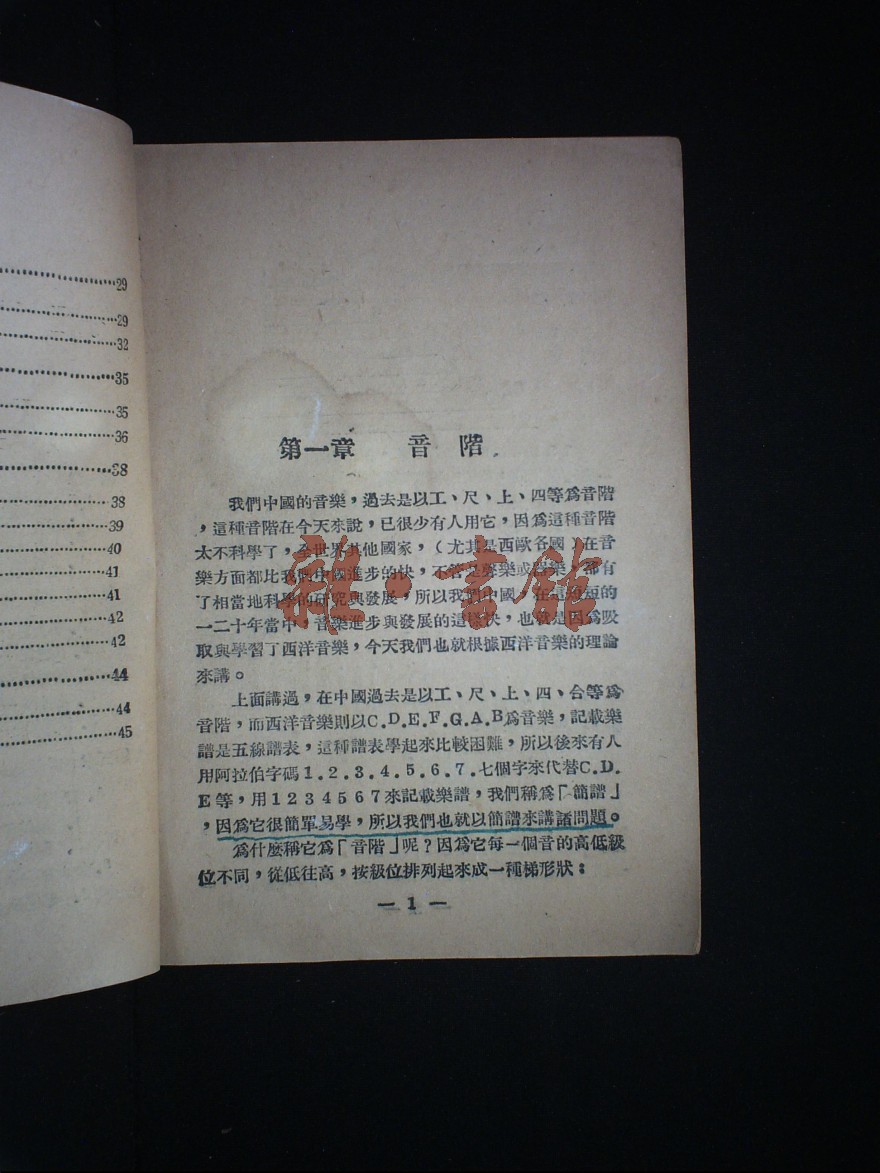 29
29
32
35
35
36
38
38
39
40
41
41
42
42
44
44
45
第一章 音階
我們中國的音樂，過去是以工、尺、上、四等爲音階
，這種音階在今天來說，已很少有人用它，因爲這種音階
太不科學了，全世界其他國家，（尤其是西歐各國）在音
樂方面都比我們中國進步的快，不管是聲樂或器樂，都有
了相當地科學的研究與發展，所以我們中國，在這短短的
一二十年當中，音樂進步與發展的這樣快，也就是因爲吸
取與學習了西洋音樂，今天我們也就根據西洋音樂的理論
來講。
上面講過，在中國過去是以工、尺、上、四、合等爲
音階，而西洋音樂則以C.D.E.F.G.A.B爲音樂，記載樂
譜是五線譜表，這種譜表學起來比較困難，所以後來有人
用阿拉伯字碼1.2.3.4.5.6.7.七個字來代替C.D.
E等，用1234567來記載樂譜，我們稱爲「簡譜」
，因爲它很簡單易學，所以我們也就以簡譜來講諸問題。
爲什麼稱它爲「音階」呢？因爲它每一個音的高低級
位不同，從低往高，按級位排列起來成一種梯形狀：
— 1 —
雜·書館